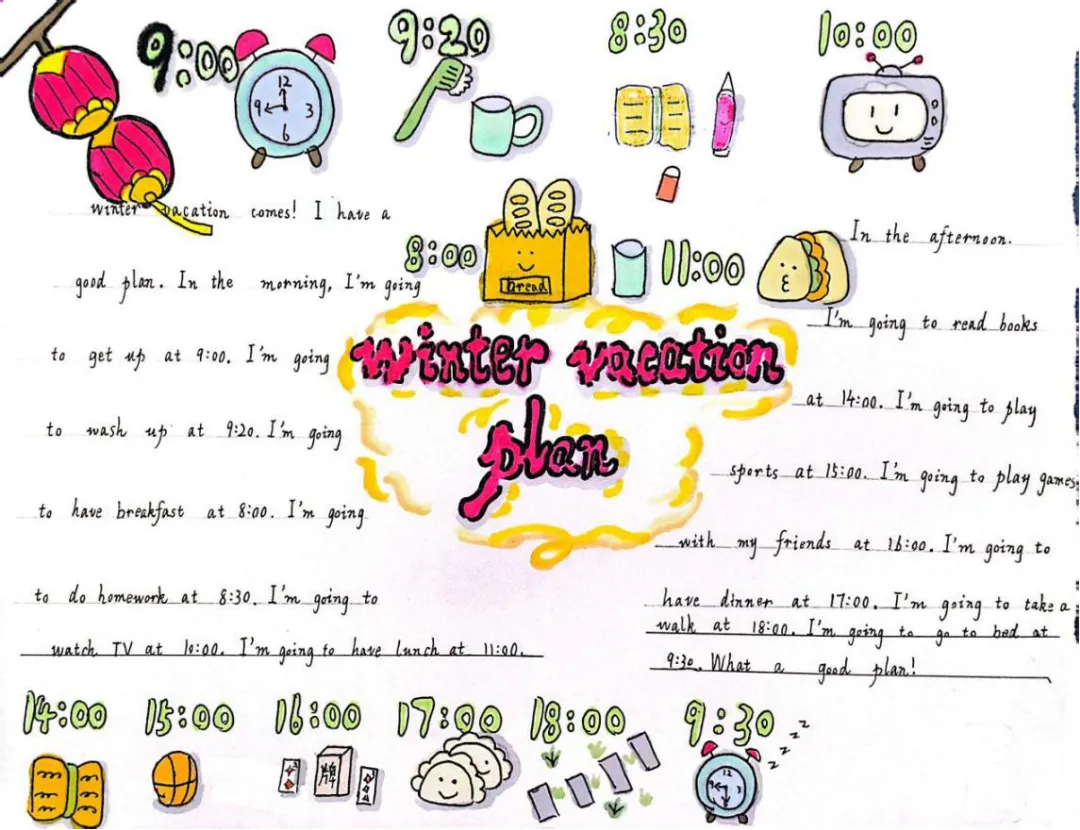 9:00
9:20
8:30
10:00
12
9
3
6
8:00
bread
11:00
winter vacation
plan
winter vacation comes! I have a
good plan. In the morning, I'm going
to get up at 9:00. I'm going
to wash up at 9:20. I'm going
to have breakfast at 8:00. I'm going
to do homework at 8:30. I'm going to
watch TV at 10:00. I'm going to have lunch at 11:00.
In the afternoon.
I'm going to read books
at 14:00. I'm going to play
sports at 15:00. I'm going to play games
with my friends at 16:00. I'm going to
have dinner at 17:00. I'm going to take a
walk at 18:00. I'm going to go to bed at
9:30. What a good plan!
14:00
15:00
16:00
17:00
18:00
9:30
z z z z
牌
12